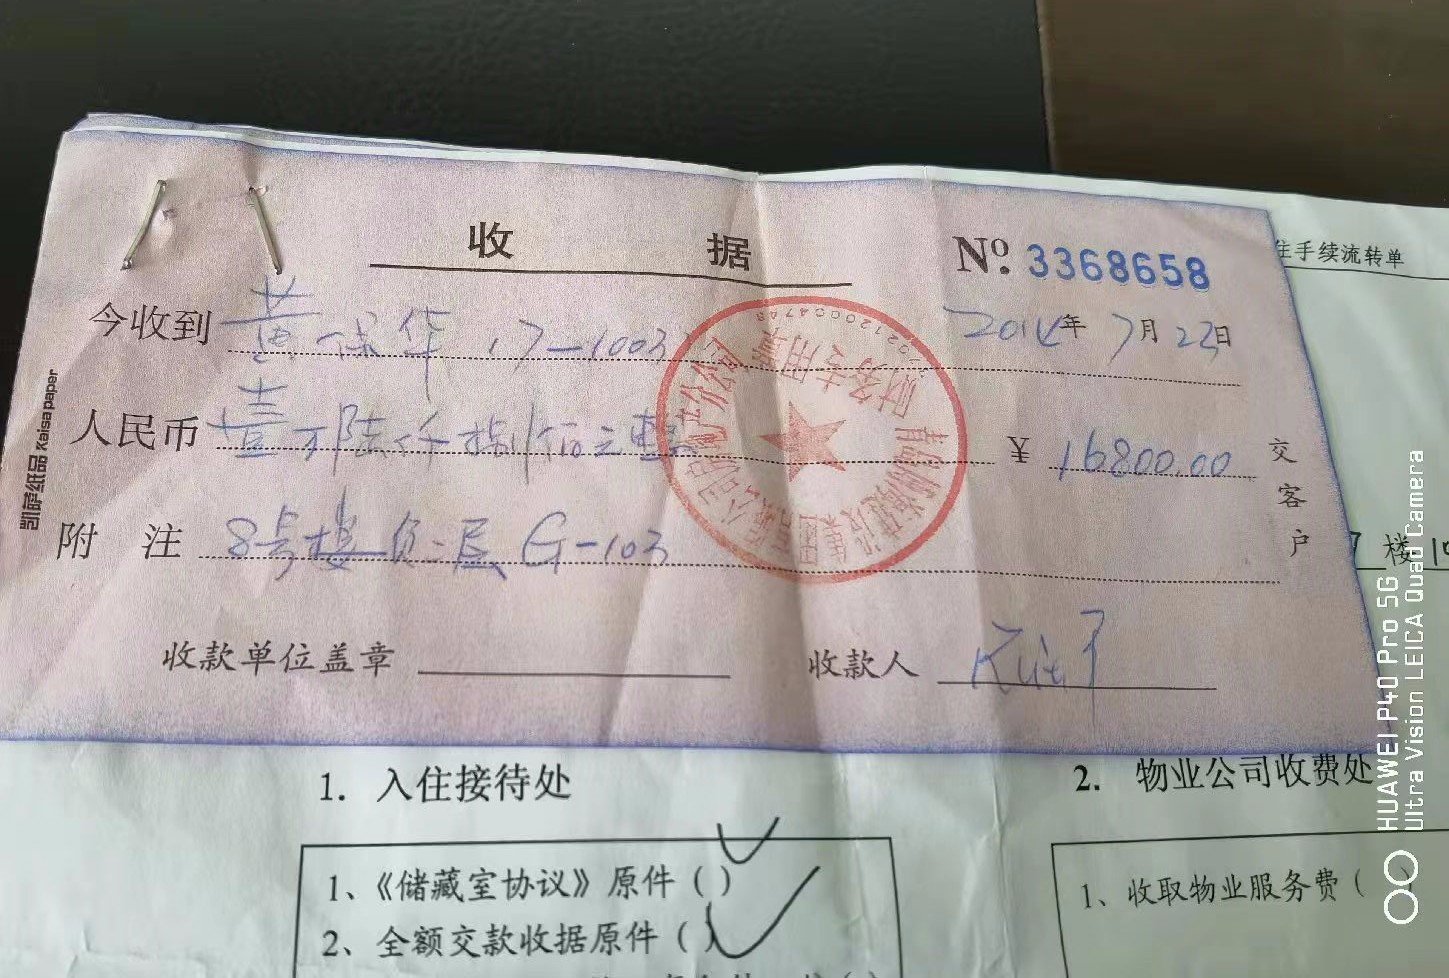 收 据
№ 3368658
住手续流转单
今收到 黄保华 17-1003
2014年7月23日
人民币 壹万陆仟捌佰元整
¥ 16800.00
附 注 8号楼负二层 G-103
交客户
收款单位盖章
收款人
凯萨纸品 Kaisa paper
财务专用章
楼
1. 入住接待处
2. 物业公司收费处
1、《储藏室协议》原件（ ）
2、全额交款收据原件（ ）
1、收取物业服务费（ ）
HUAWEI P40 Pro 5G
Ultra Vision LEICA Quad Camera